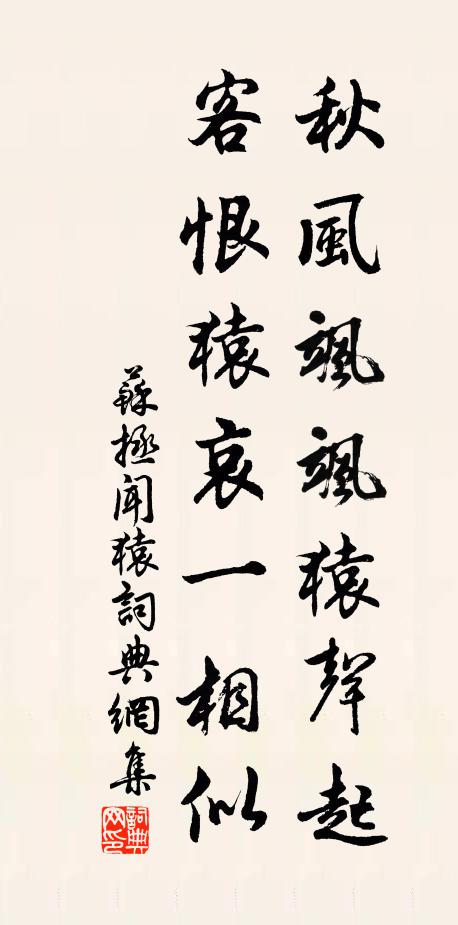 秋風颯颯猿聲起
客恨猿哀一相似
蘇拯聞猿詞典網集
詞典網印